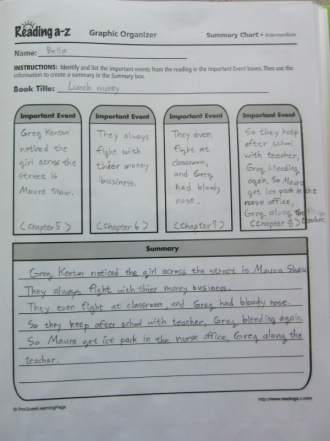 Reading a-z Graphic Organizer Summary Chart • Intermediate
Name: Bella
INSTRUCTIONS: Identify and list the important events from the reading in the Important Event boxes. Then use the
information to create a summary in the Summary box.
Book Title: Lunch money
Important Event
Greg Kenton
noticed the
girl across the
street is
Maura Shaw.
(chapter 5)
Important Event
They always
fight with
thier money
business.
(chapter 6)
Important Event
They even
fight at
classroom,
and Greg
had bloody
nose.
(chapter 7)
Important Event
So they keep
after school
with teacher,
Greg bleeding
again, So Maura
get ice park in the
nurse office,
Greg along the
(chapter 8) teacher.
Summary
Greg Kenton noticed the girl across the street is Maura Shaw.
They always fight with thier money business.
They even fight at classroom, and Greg had bloody nose.
So they keep after school with teacher, Greg bleeding again,
So Maura get ice park in the nurse office, Greg along the
teacher.
© ProQuest LearningPage http://www.readinga-z.com